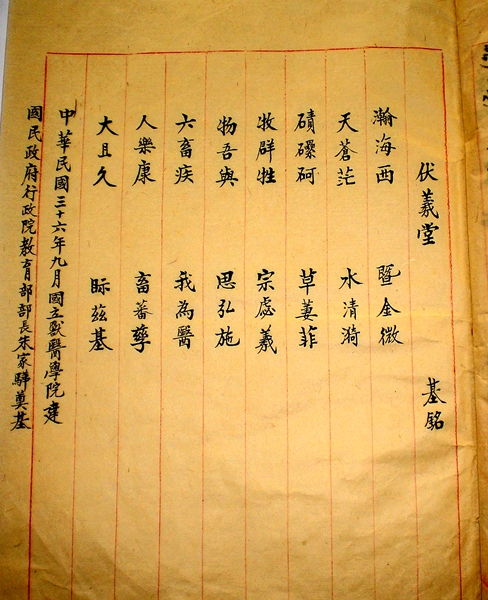 伏羲堂 基銘
瀚海西 暨金微
天蒼茫 水清漪
磧礫砢 草萋菲
牧群牲 宗處羲
物吾與 思弘施
六畜疾 我為醫
人樂康 畜蕃孳
大且久 眎茲基
中華民國三十六年九月國立獸醫學院建
國民政府行政院教育部部長朱家驊奠基